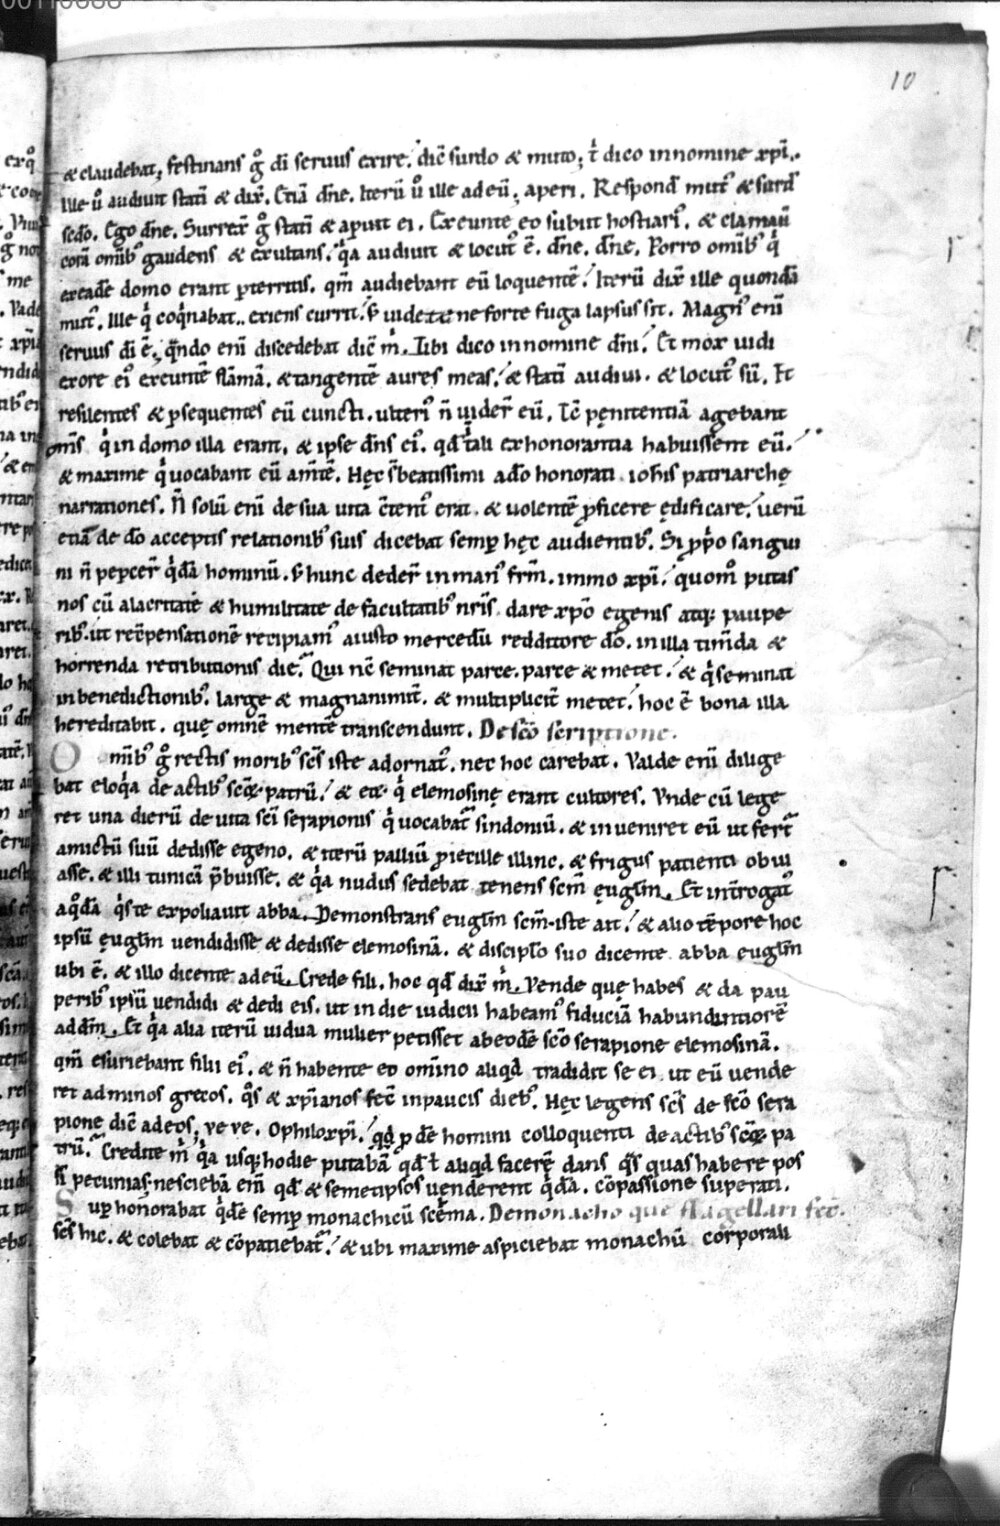 10
& claudebat, festinans g̊ di seruus exire. dic̄ surdo & muto; t̄ dico innomine xp̄i.
Ille ů audiuit statī & dix̄. Etiā dn̄e. Iterū ů ille adeū; aperi. Respond̄ mut᷒ & surd᷒
sedo. Ego dn̄e. Surrex̄ g̊ statī & apuit ei. Exeunte eo subiit hostiari᷒. & clamau̅
corā omīb᷒ gaudens & exultans. q̇a audiuit & locut᷒ ē. dn̄e. dn̄e. Porro omīb᷒ q̇
exeadē domo erant p̱territis. qm̄ audiebant eū loquentē. Iterū dix̄ ille quondā
mut᷒. Ille q̇ coq̇nabat. exiens currit. s̄ uidete ne forte fuga lapsus sit. Magn᷒ enī
seruus dī ē. q̄ndo enī discedebat dic̄ m̊. Tibi dico in nomine dn̄i. Et mox uidi
exore ei᷒ exeuntē flāmā. & tangentē aures meas. & statī audiui. & locut᷒ sū. Et
resilentes & p̱sequentes eū cuncti. ulteri᷒ n̄ uider̄ eū. Tc̄ pęnitentiā agebant
om̄s q̇ in domo illa erant. & ipse dn̄s ei᷒. qd̄ tali exhonorantia habuissent eū.
& maxime q̇ uocabant eū am̄tē. Hęc s̄ beatissimi a do honorati iohis patriarchę
narrationes. N̄ solū enī de sua uita c̄tent᷒ erat. & uolentē p̱ficere ędificare. uerū
etiā de do acceptis relationib᷒ suis dicebat semp̱ hęc audientib᷒. Si p̱prio sangui
ni n̄ peper̄ q̇dā hominū. s̄ hunc deder̄ in man᷒ frm̄. immo xp̄i. quom᷒ putas
nos cū alacritate & humilitate de facultatib᷒ nr̄is dare xp̄o egenis atq; paupe
rib᷒. ut rec̄pensationē recipiam᷒ a iusto mercedū redditore do. in illa timēda &
horrenda retributionis die. Qui nc̄ seminat parce. parce & metet. & q̇ seminat
in benedictionib᷒. large & magnanimit̄. & multiplicit̄ metet. hoc ē bona illa
hereditabit. quę omnē mentē transcendunt. De scō scriptione.
Omīb᷒ g̊ rectis morib᷒ scs̄ iste adornat᷒. nec hoc carebat. Valde enī dilige
bat eloq̇a de actib᷒ scōꝝ patrū. & etc̄ q̇ elemosinę erant cultores. Vnde cū lege
ret una dierū de uita scī serapionis q̇ uocabat̄ sindoniū. & inueniret eū ut fert̄
amictū suū dedisse egeno. & iterū palliū p̱ietille illinc. & frigus patienti obui
asse. & illi tunicā p̄buisse. & q̇a nudus sedebat tenens scm̄ ęuglm̄. Et int̄rogat᷒
aq̇dā q̇s te expoliauit abba. Demonstrans euglm̄ scm̄. iste ait. & alio tēpore hoc
ipsū ęuglm̄ uendidisse & dedisse elemosinā. & discipl̄o suo dicente abba euglm̄
ubi ē. & illo dicente adeū. Crede fili. hoc qd̄ dix̄ m̊. Vende que habes & da pau
perib᷒ ipsū uendidi & dedi eis. ut in die iudicii habeam᷒ fiduciā habundantiorē
ad dm̄. Et q̇a alia iterū uidua mulier petisset abeodē scō serapione elemosinā.
qm̄ esuriebant filii ei᷒. & n̄ habente eo omīno aliqd̄ tradidit se ei. ut eū uende
ret ad minos grecos. q̇s & xp̄ianos fec̄ in paucis dieb᷒. Hęc legens scs̄ de scō sera
pione dic̄ adeos. ve ve. O philoxp̄i. qd̄ p̱dē homini colloquenti de actib᷒ scōꝝ pa
trū. Credite m̊ q̇a usq; hodie putabā qd̄ t̄ aliqd̄ facerē dans q̇s quas habere pos
sī pecunias. nesciebā em̄ qd̄ & semetipsos uenderent q̇dā. cōpassione superati.
Sup̱ honorabat q̇dē semp̱ monachicū scēma. De monacho que flagellari fec̄.
scs̄ hic. & colebat & cōpatiebat̄. & ubi maxime aspiciebat monachū corporali